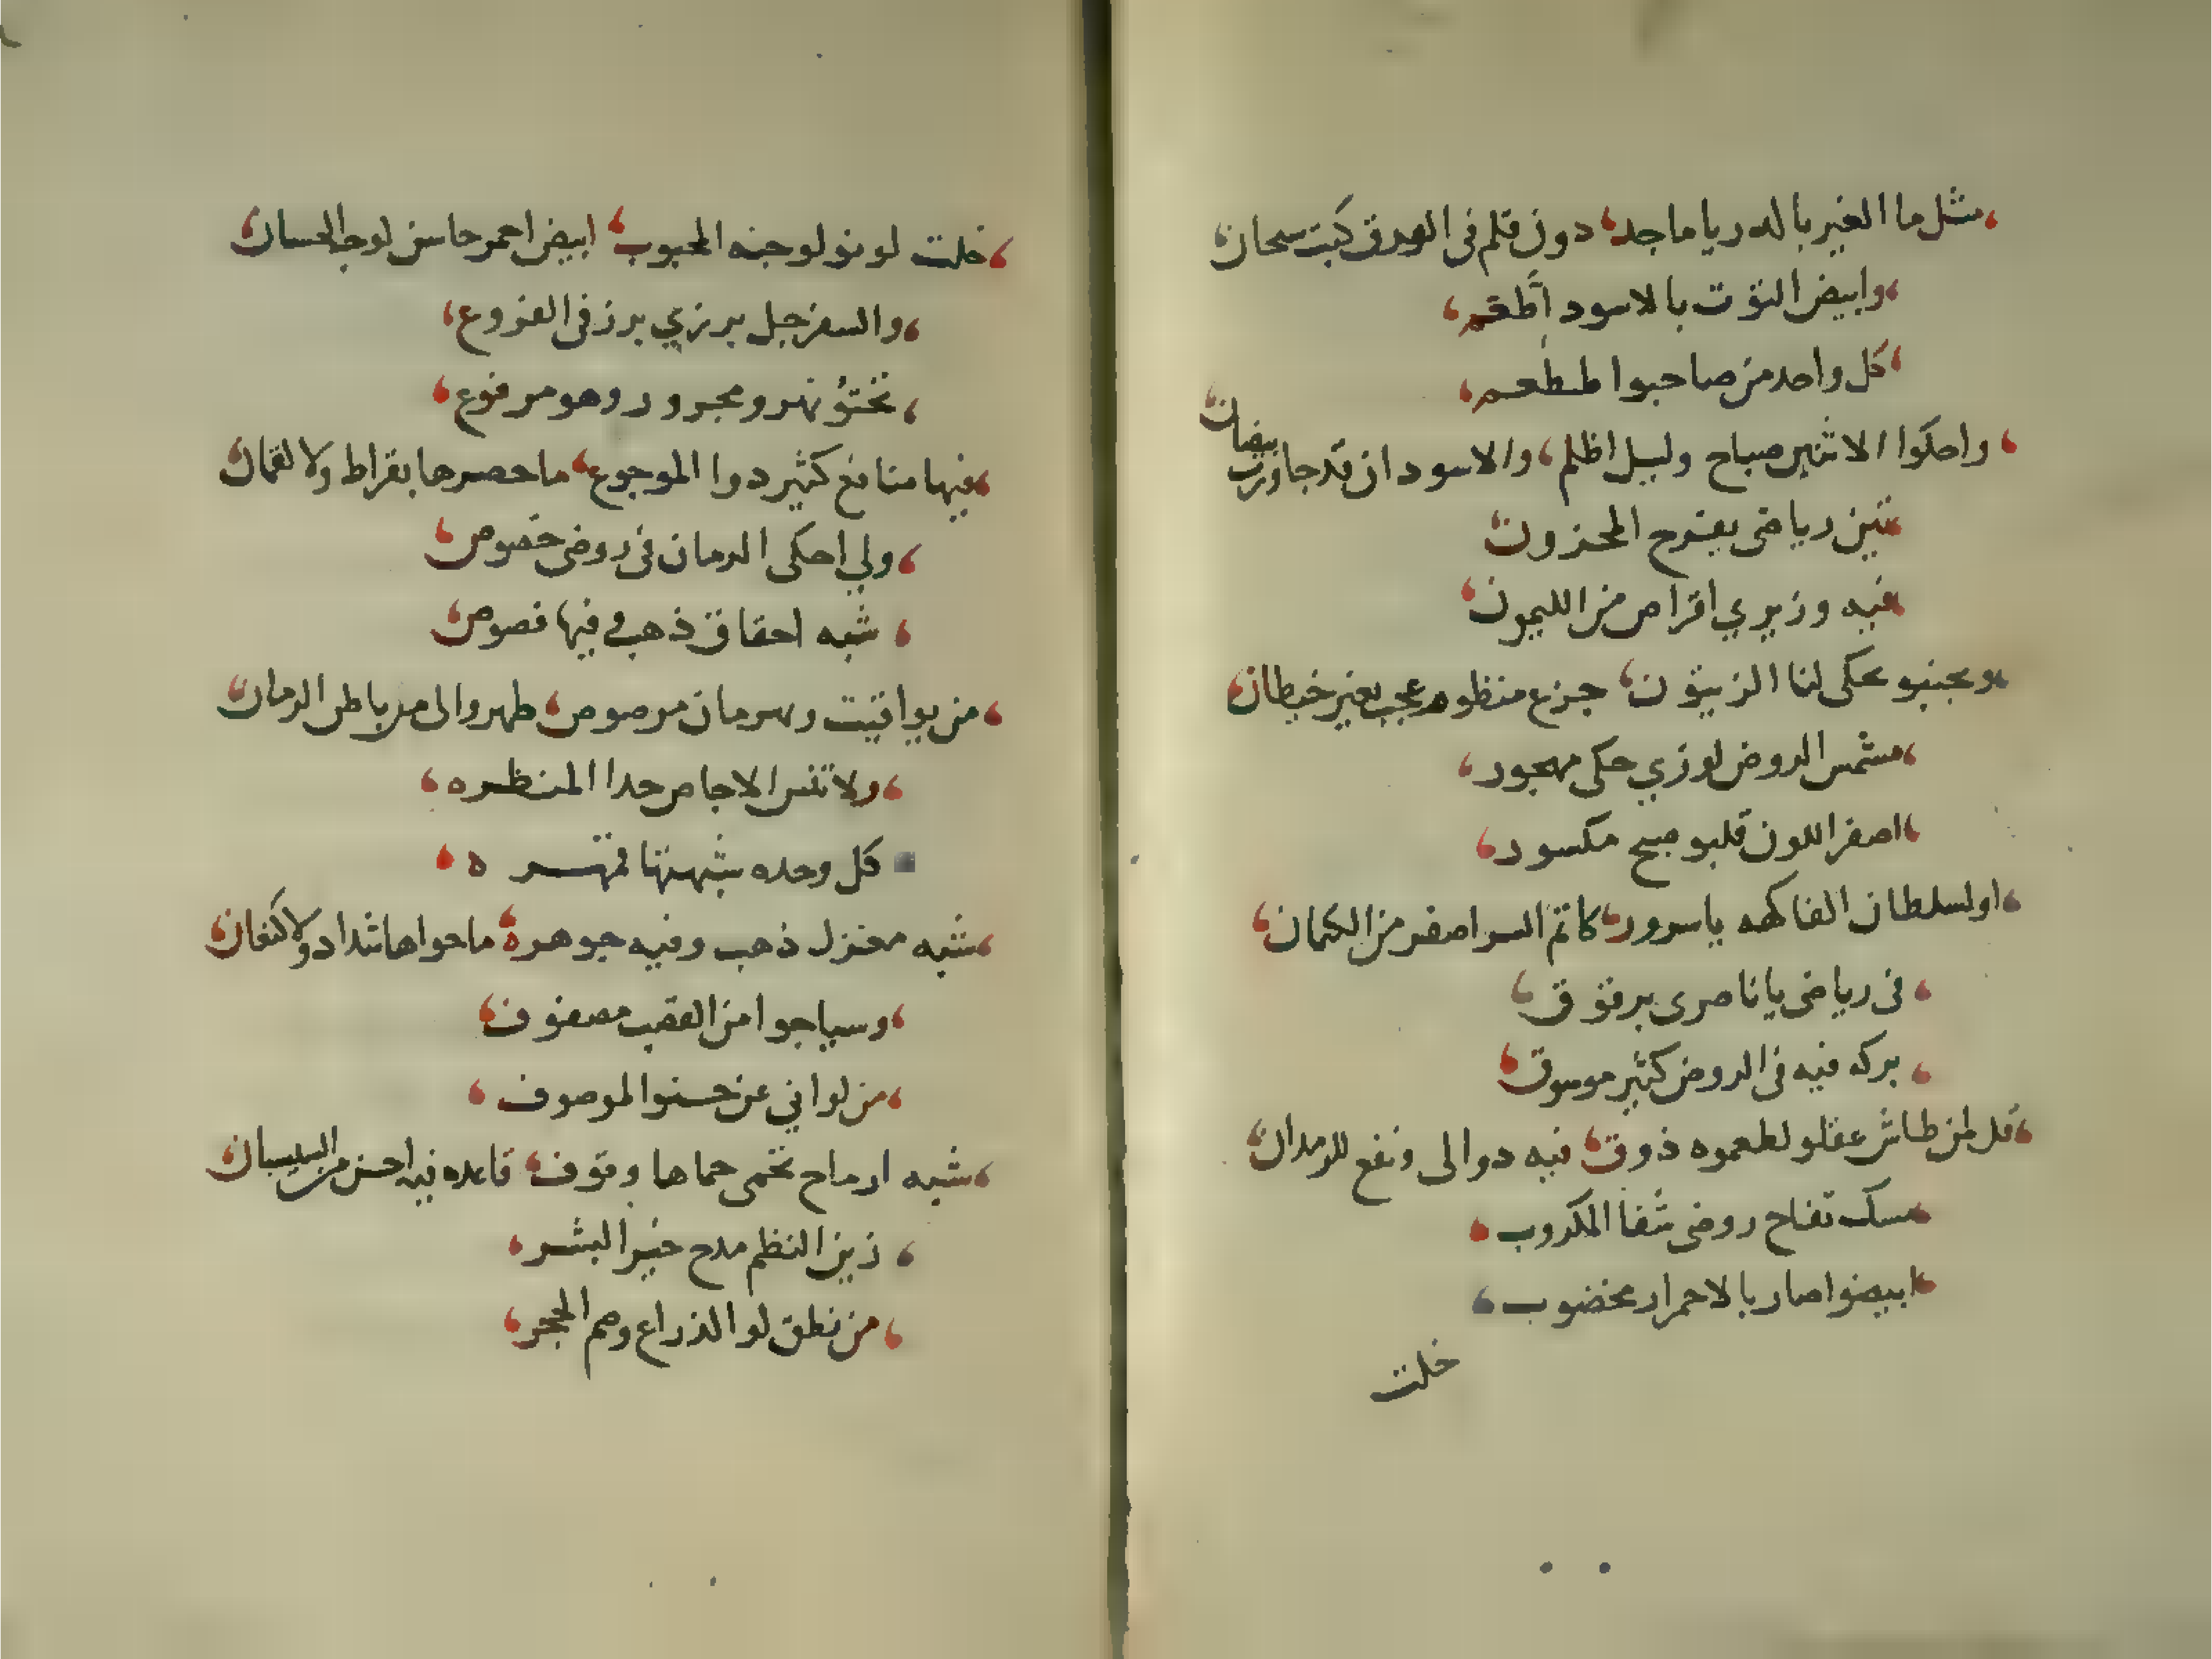 مثل ما الغير بالله ريا ماجد دون قلم فى الورق كبت سحان
وابيض التوت بالاسود اطعم
كل واحد من صاحبوا طعم
واحكوا الاثنين صباح وليل اظلم والاسودان قد جاورت بيضان
تين رياضى يفرح المحزون
فيه وزيري اقراص من الليمون
بو عجبنبو يحكى لنا الزيتون جزع منظوم عجب بغير خيطان
مشمس الروض لوزي حكى مهجور
اصفر اللون قلبو صبح مكسور
اولسلطان الفاكهه ياسرور كاتم السر اصفر من الكتمان
فى رياضى يا ناصرى برقوق
بركه فيه فى الروض كثير موسوق
قل لمن طاش عقلو لطعموه ذوق فيه دوا لى ونفع للرمدان
مسك تفاح روضى شفا المكروب
ابيضوا صار بالاحمرار مخضوب
خلت
خلت لونو لوجنه المحبوب ابيض احمر حاسن لوجه الحسان
والسفرجل برزي برز فى الفروع
تحتو نهرو مجرور وهو مرفوع
فيها منافع كثير دوا الموجوع ما حصرها بقراط ولا لقمان
ولي احكى الرمان فى روضى خصوص
شبه احقاق ذهب وفيها فصوص
من يواقيت وبهرمان مرصوص ظهروا لى من باطن الرمان
ولا تنس الاجاص حدا المنظره
كل وحده شبهتها قهره
شبه مخزل ذهب وفيه جوهره ما حواها شداد ولا كنعان
وسياجوا من القصب مصفوف
من لوانى عن حسنوا الموصوف
شبه ارماح تحمى حماها وقوف قاعده فيه احسن من البيسان
زين النظم مدح خير البشر
من نطق لو الذراع وصم الحجر